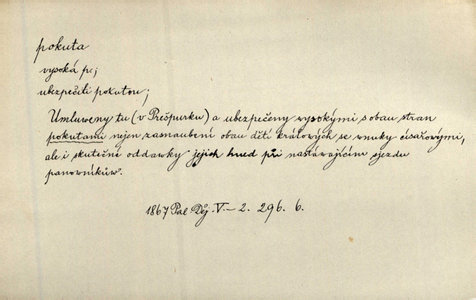 pokuta
vysoká p.;
ubezpečiti pokutou;
Umluweny tu (v Prešpurku) a ubezpečeny vysokými s obau stran
pokutami nejen zasnaubení obau dětí králových se vnuky císařovými,
ale i skutečné oddawky jejich hned při nastáwajícím sjezdu
panovníkůw.
1867 Pal Děj. V-2. 296. 6.